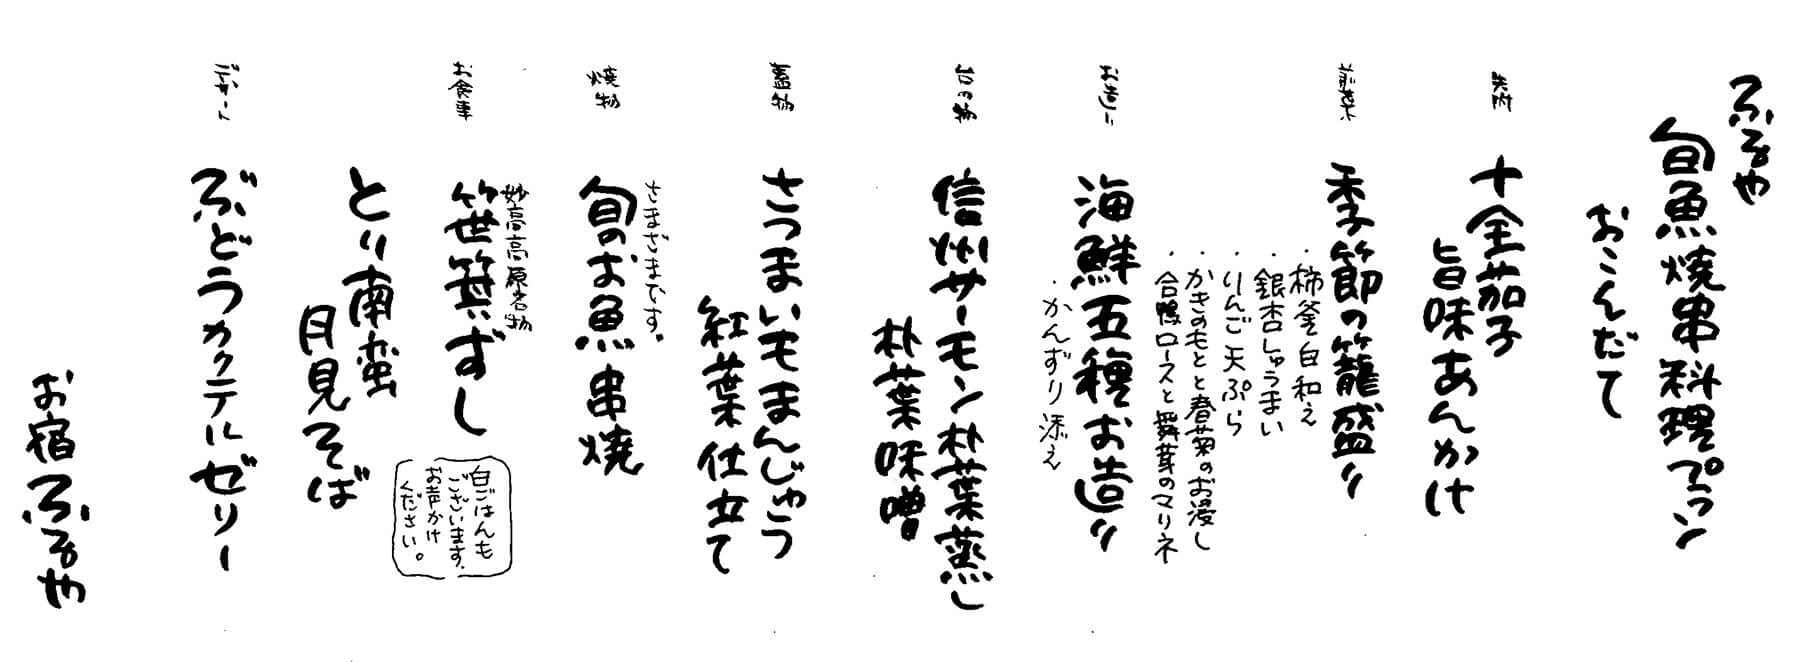 ふるや
旬魚焼串料理プラン
おこんだて
先附
十全茄子
旨味あんかけ
前菜
季節の籠盛り
・柿釜白和え
・銀杏しゅうまい
・りんご天ぷら
・かきのもとと春菊のお浸し
・合鴨ロースと舞茸のマリネ
お造り
海鮮五種お造り
・かんずり添え
台の物
信州サーモン朴葉蒸し
朴葉味噌
蓋物
さつまいもまんじゅう
紅葉仕立て
焼物
さまざまです。
旬のお魚串焼
お食事
妙高高原名物
笹箕ずし
白ごはんも
ございます。
お声かけ
ください。
とり南蛮
月見そば
デザート
ぶどうカクテルゼリー
お宿ふるや